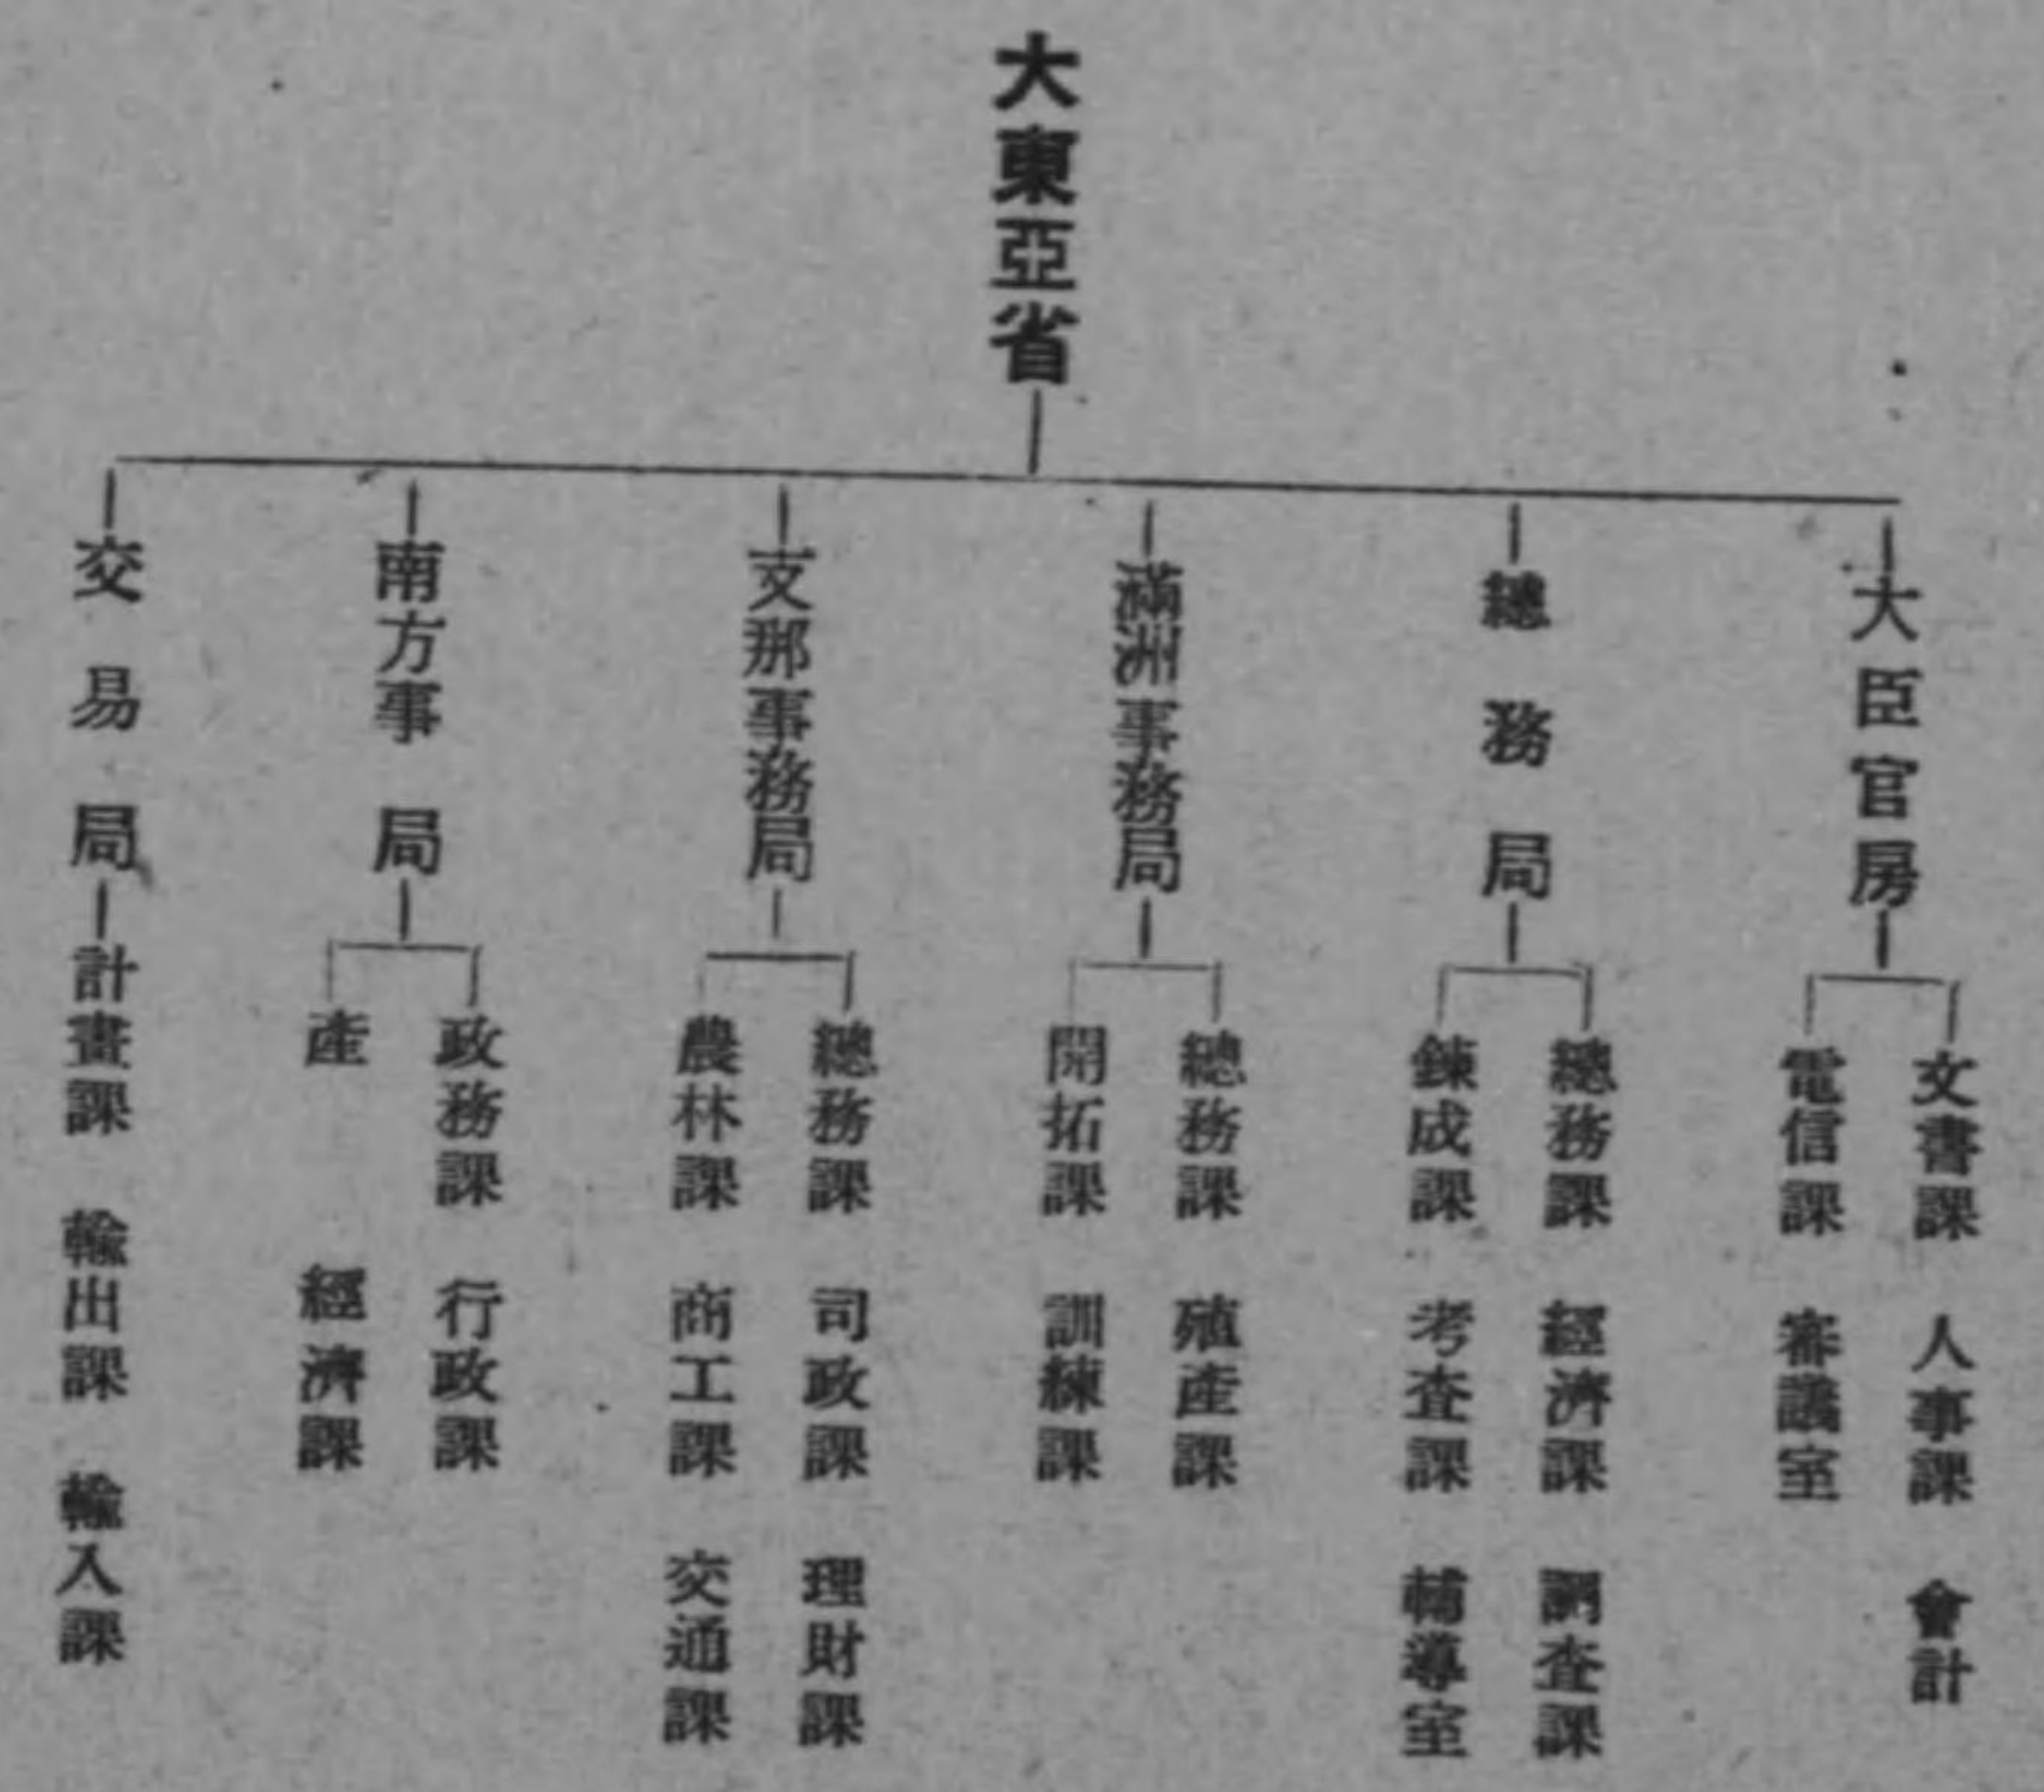 大東亞省
大臣官房
文書課 人事課 會計
電信課 審議室
總務局
總務課 經濟課 調査課
錬成課 考査課 輔導室
滿洲事務局
總務課 殖産課
開拓課 訓練課
支那事務局
總務課 司政課 理財課
農林課 商工課 交通課
南方事局
政務課 行政課
産 經濟課
交易局
計畫課 輸出課 輸入課